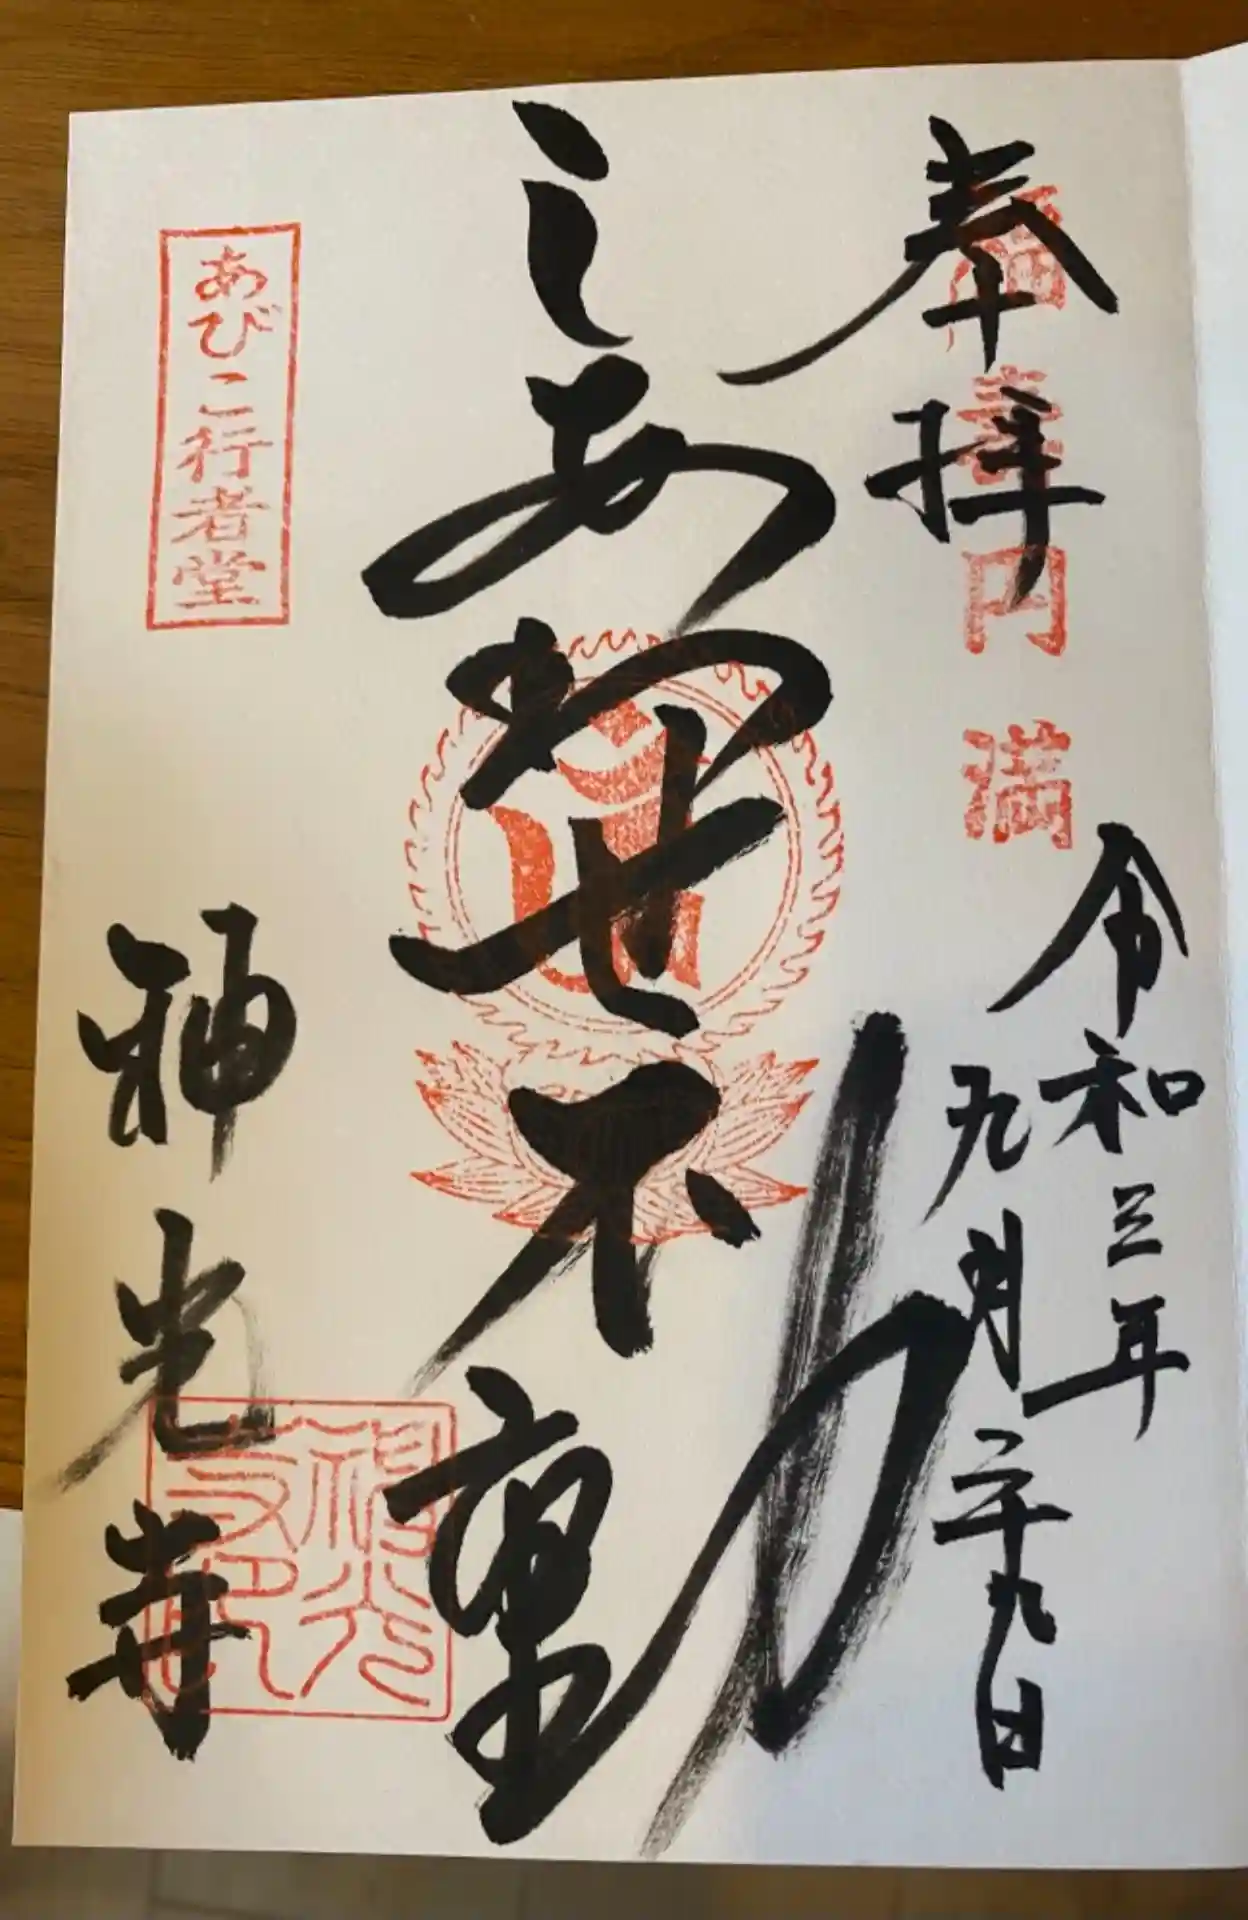 奉拝
福寿円満
令和三年
九月二十九日
しあわせ不動
あびこ行者堂
神光寺